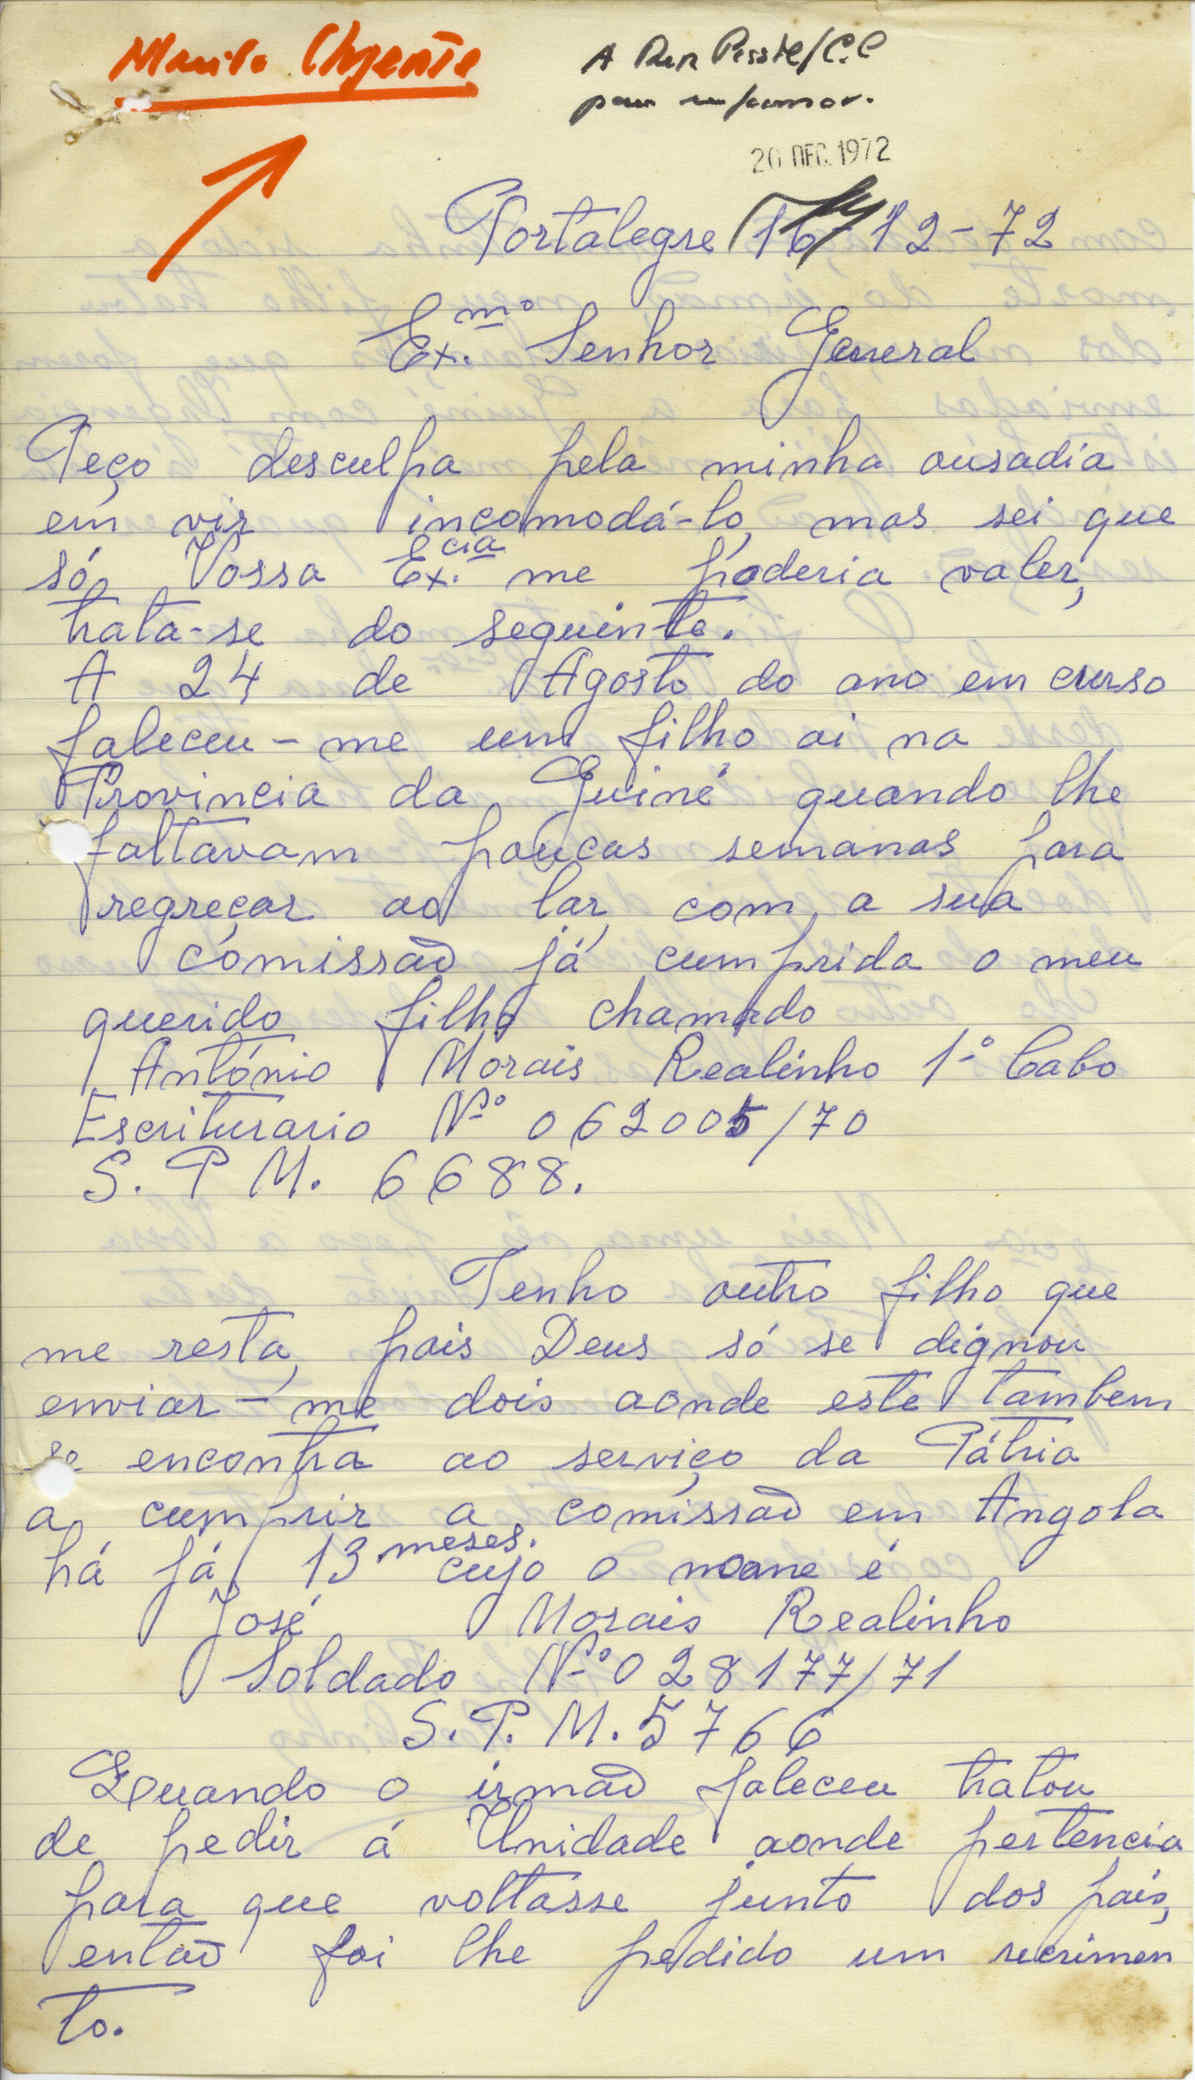 Muito Urgente
A Rep
para informar.
20 DEC. 1972
Portalegre 16-12-72
Ex.mo Senhor General
Peço desculpa pela minha ousadia
em vir incomodá-lo, mas sei que
só Vossa Ex.cia me poderia valer,
trata-se do seguinte.
A 24 de Agosto do ano em curso
faleceu-me um filho ai na
Provincia da Guiné quando lhe
faltavam poucas semanas para
regreçar ao lar, com a sua
comissão já cumprida o meu
querido filho chamado
António Morais Realinho 1º Cabo
Escriturario Nº 062005/70
S. P. M. 6688.
Tenho outro filho que
me resta, pois Deus só se dignou
enviar-me dois aonde este tambem
se encontra ao serviço da Pátria
a cumprir a comissão em Angola
há já 13 meses. cujo o nome é
José Morais Realinho
Soldado Nº 028177/71
S. P. M. 5766
Quando o irmão faleceu tratou
de pedir á Unidade aonde pertencia
para que voltasse junto dos pais,
então foi lhe pedido um recrimen
to.